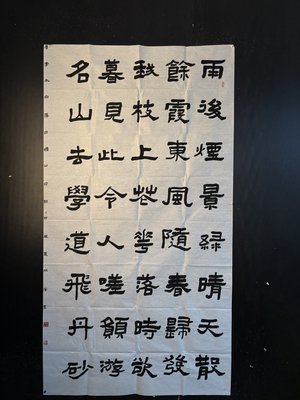 雨後煙景綠晴天散
餘霞東風隨春歸發
我枝上花華落時欲
暮見此令人嗟願游
名山去學道飛丹砂